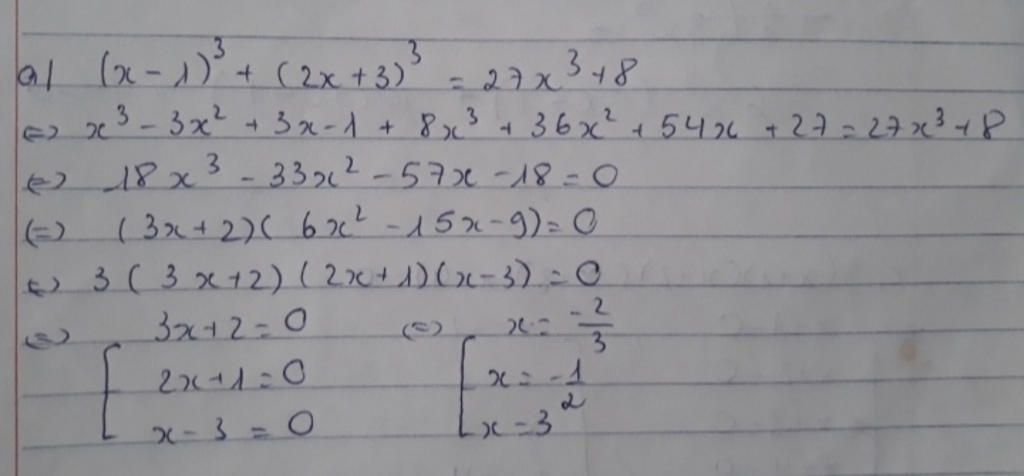 a/ (x - 1)³ + (2x + 3)³ = 27x³ + 8
<=> x³ - 3x² + 3x - 1 + 8x³ + 36x² + 54x + 27 = 27x³ + 8
<=> 18x³ - 33x² - 57x - 18 = 0
<=> (3x + 2)( 6x² - 15x - 9) = 0
<=> 3 ( 3x + 2) (2x + 1)(x - 3) = 0
<=> [ 3x + 2 = 0 <=> [ x = -2/3
2x + 1 = 0 x = -1/2
x - 3 = 0 x = 3